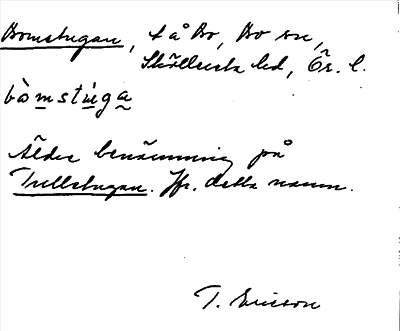 Bomstugan, t å Bo, Bo sn,
Sköllersta hd, Ör. l.
bòmstùga
Äldre benämning på
Trullstugan. Jfr. detta namn.
T. Ericson